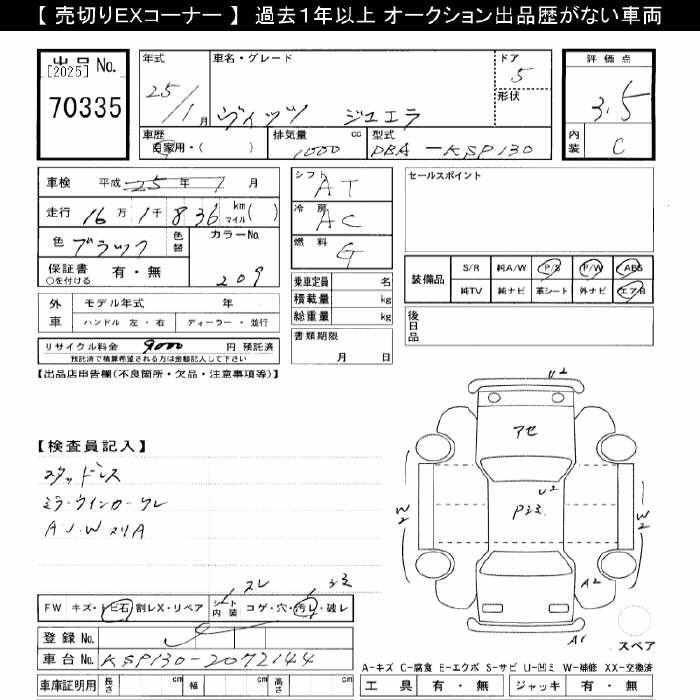 【 売切りEXコーナー 】 過去1年以上 オークション出品歴がない車両
出品 No.
[2025]
70335
年式
25/1月
車名・グレード
ヴィッツ ジュエラ
ドア
5
形状
車歴
自家用・( )
排気量
1000 cc
型式
DBA-KSP130
評価点
3.5
内装
C
車検 平成 25年 1月
走行 16万1千836 km マイル ( )
色 ブラック
色替
カラーNo.
209
保証書
○を付ける
有・無
外車
モデル年式 年
ハンドル 左・右
ディーラー・並行
リサイクル料金 9000 円 預託済
預託済で積算希望される方は金額記入して下さい
シフト AT
冷房 AC
燃料 G
乗車定員 名
積載量 kg
総重量 kg
書類期限
月 日
セールスポイント
装備品
S/R 純A/W P/S P/W ABS
純TV 純ナビ 革シート 外ナビ エアB
後日品
【出品店申告欄(不良箇所・欠品・注意事項等)】
【検査員記入】
スタッドレス
ミラーウインカーワレ
A・J・W スリA
U2
アセ
U2
Pシミ
W2
W2
A2
A1
スペア
スレ シミ
FW キズ・トビ石・割レX・リペア
シート内装 コゲ・穴・汚レ・破レ
登録 No.
車台 No. KSP130-2072144
車庫証明用 長さ cm 幅 cm 高さ cm
A-キズ C-腐食 E-エクボ S-サビ U-凹ミ W-補修 XX-交換済
工具 有・無 ジャッキ 有・無